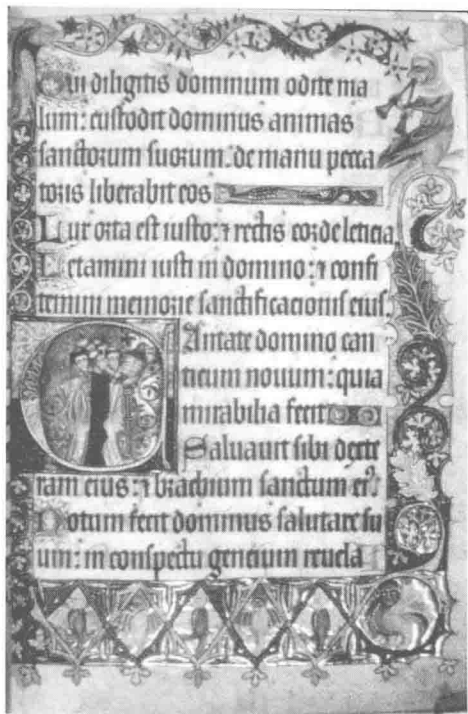 Qui diligitis dominum odite ma
lum: custodit dominus animas
sanctorum suorum: de manu pecca
toris liberabit eos
Lux orta est iusto: ⁊ rectis corde leticia
Letamini iusti in domino: ⁊ confi
temini memorie sanctificacionis eius.
Cantate domino can
ticum nouum: quia
mirabilia fecit
Saluauit sibi dexte
ram eius: ⁊ brachium sanctum eiꝰ.
Notum fecit dominus salutare su
um: in conspectu gencium reuela